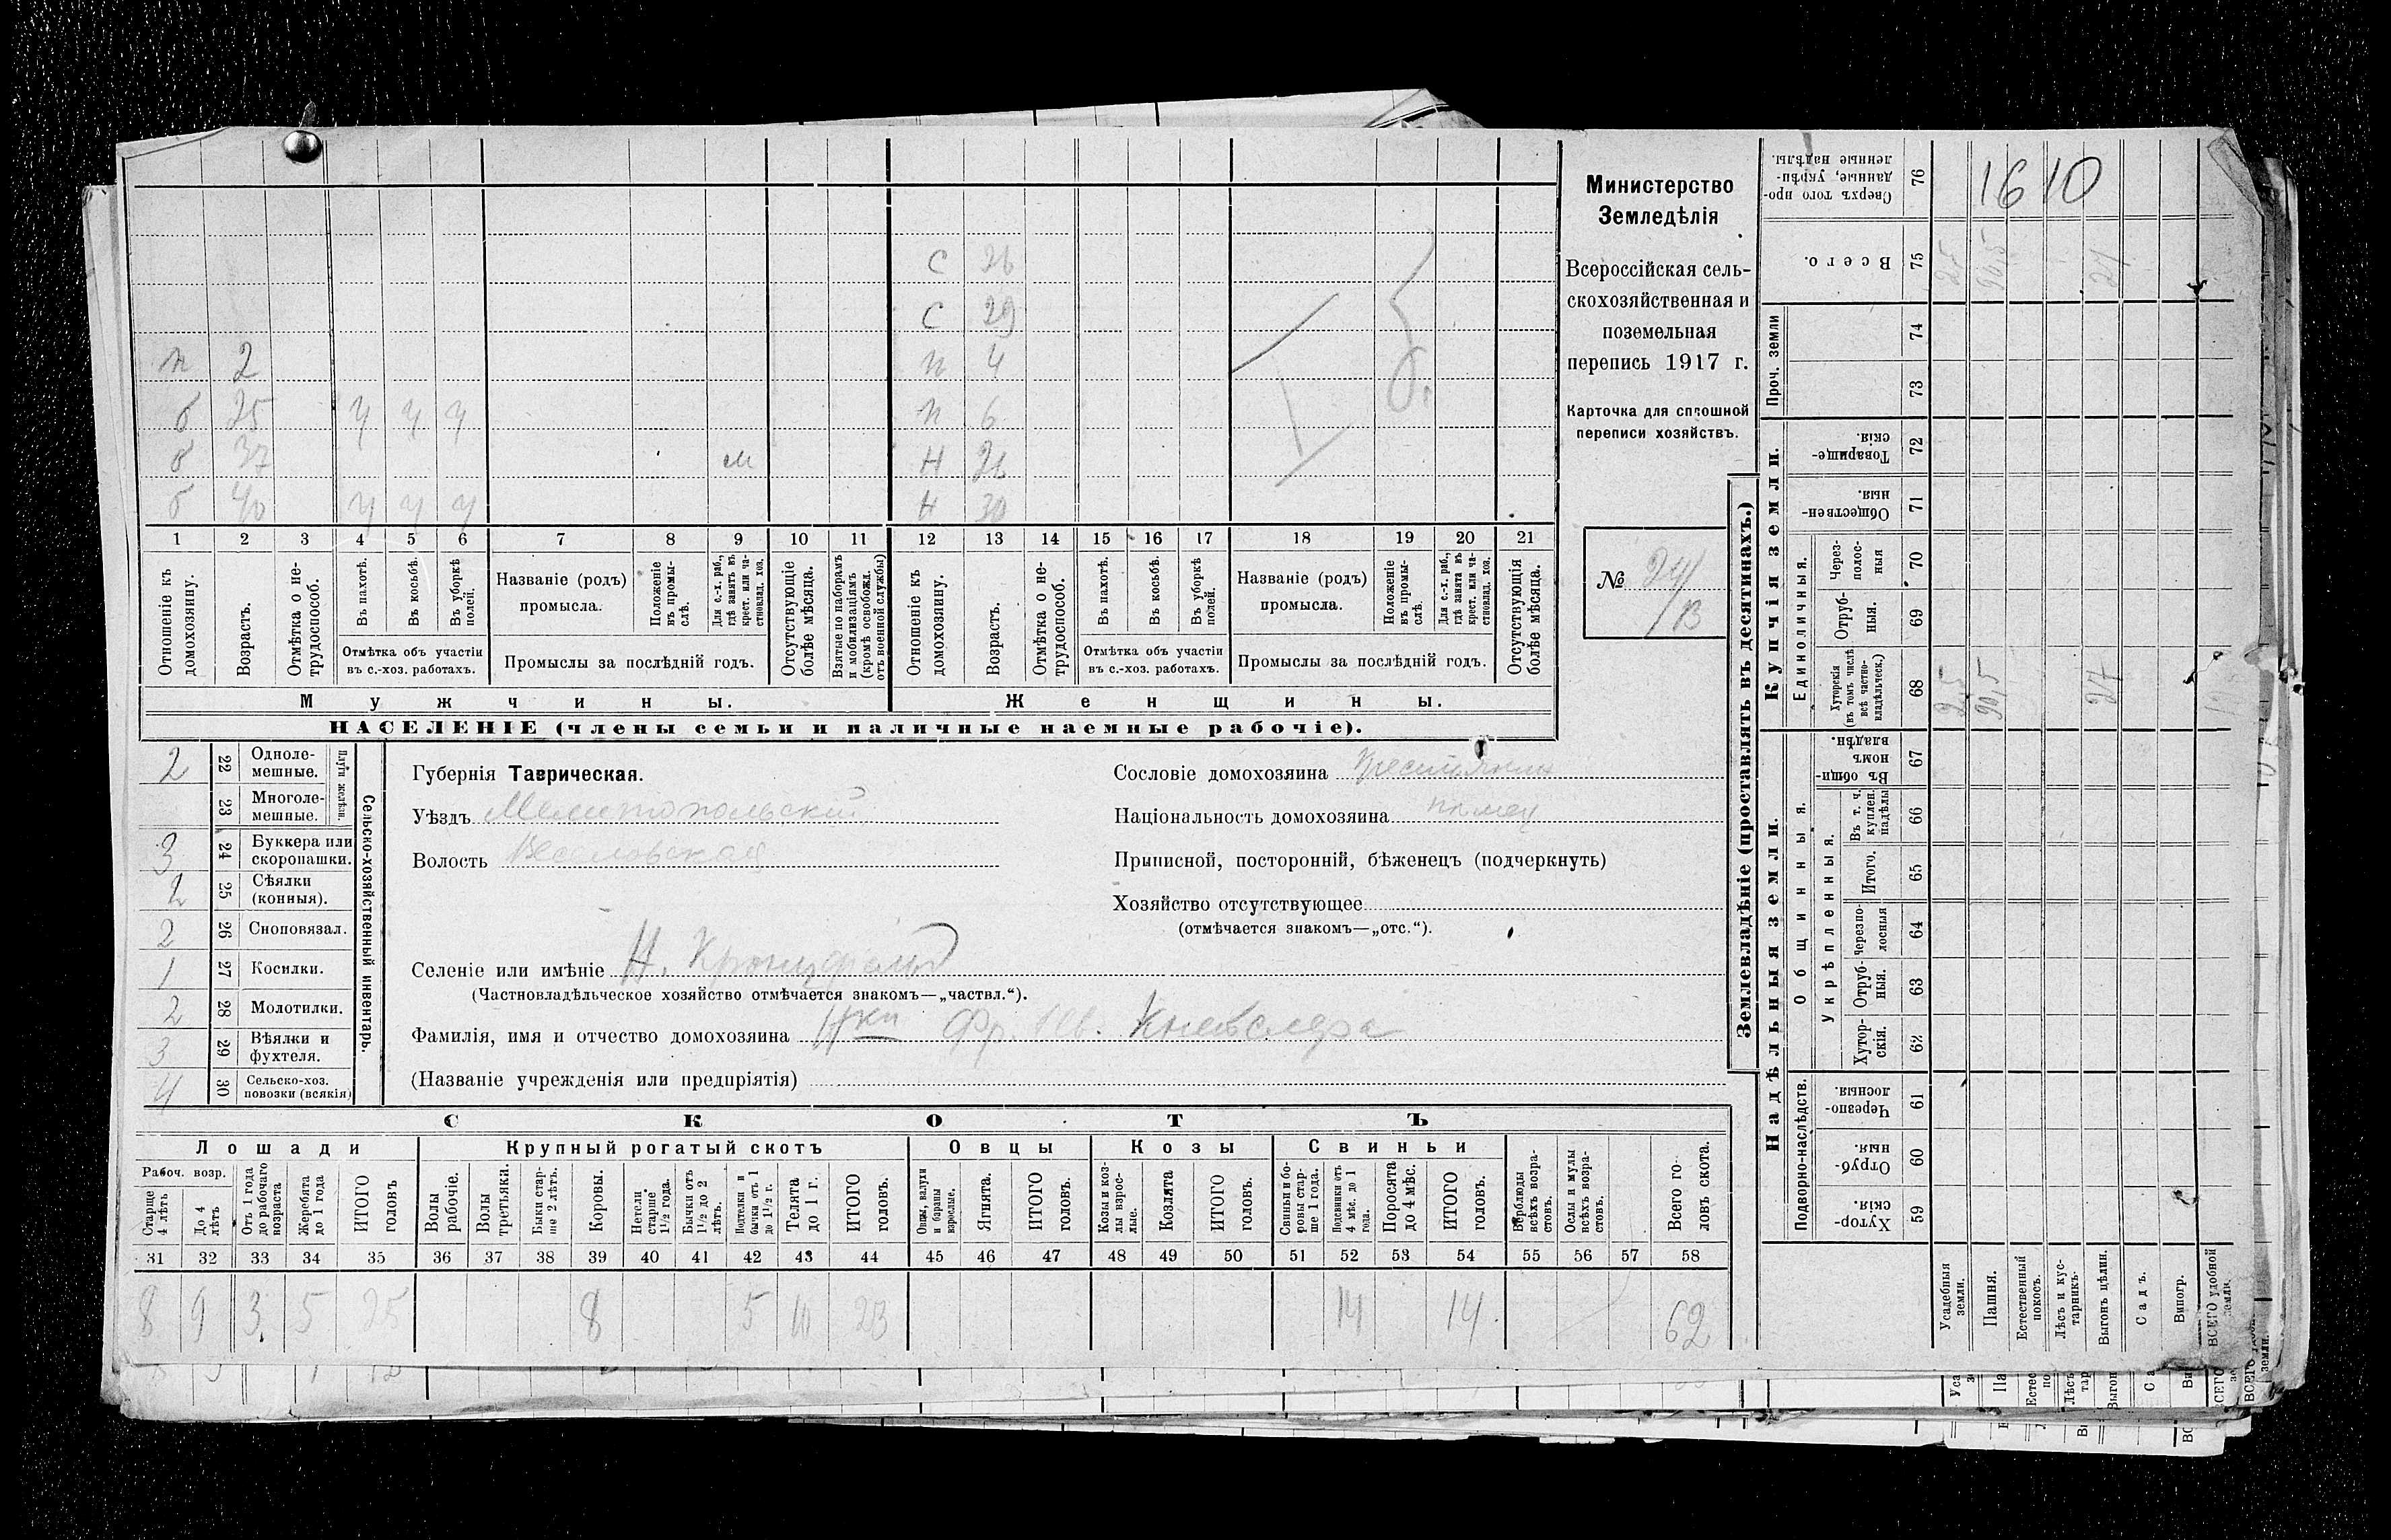 с 26
с 29
п 2 п 4
б 25 ч ч ч п 6
б 37 м н 26
б 40 ч ч ч н 30
1 2 3 4 5 6 7 8 9 10 11 12 13 14 15 16 17 18 19 20 21
Отношеніе къ домохозяину.
Возрастъ.
Отмѣтка о нетрудоспособ.
Въ пахотѣ.
Въ косьбѣ.
Въ уборкѣ полей.
Отмѣтка объ участіи
въ с.-хоз. работахъ.
Названіе (родъ)
промысла.
Положеніе въ промыслѣ.
Для с.-х. раб., гдѣ занятъ въ крест. или частновлад. хоз.
Промыслы за послѣдній годъ.
Отсутствующіе болѣе мѣсяца.
Взятые по наборамъ и мобилизаціямъ (кромѣ освобожд. отъ военной службы)
Отношеніе къ домохозяину.
Возрастъ.
Отмѣтка о нетрудоспособ.
Въ пахотѣ.
Въ косьбѣ.
Въ уборкѣ полей.
Отмѣтка объ участіи
въ с.-хоз. работахъ.
Названіе (родъ)
промысла.
Положеніе въ промыслѣ.
Для с.-х. раб., гдѣ занята въ крест. или частновлад. хоз.
Промыслы за послѣдній годъ.
Отсутствующія болѣе мѣсяца.
Мужчины. Женщины.
НАСЕЛЕНІЕ (члены семьи и наличные наемные рабочіе).
Министерство
Земледѣлія
Всероссійская сель-
скохозяйственная и
поземельная
перепись 1917 г.
Карточка для сплошной
переписи хозяйствъ.
№ 24/В
Сельско-хозяйственный инвентарь.
Плуги желѣзн.
2 22 Одноле-
мешные.
23 Многоле-
мешные.
3 24 Буккера или
скоропашки.
2 25 Сѣялки
(конныя).
2 26 Сноповязал.
1 27 Косилки.
2 28 Молотилки.
3 29 Вѣялки и
фухтеля.
4 30 Сельско-хоз.
повозки (всякія)
Губернія Таврическая.
Уѣздъ Мелитопольскій
Волость Веселовская
Сословіе домохозяина Крестьянин
Національность домохозяина нѣмец
Приписной, посторонній, бѣженецъ (подчеркнуть)
Хозяйство отсутствующее
(отмѣчается знакомъ—„отс.“).
Селеніе или имѣніе Н. Кронсфельд
(Частновладѣльческое хозяйство отмѣчается знакомъ—„частвл.“).
Фамилія, имя и отчество домохозяина Н-ки Фр. Ив.
(Названіе учрежденія или предпріятія)
СКОТЪ
Лошади Крупный рогатый скотъ Овцы Козы Свиньи
Рабоч. возр.
Старще 4 лѣтъ
До 4 лѣтъ
Отъ 1 года до рабочаго возраста
Жеребята до 1 года
ИТОГО головъ
Волы рабочіе.
Волы третьяки.
Быки старше 2 лѣтъ.
Коровы.
Нетели старше 1½ года.
Бычки отъ 1½ до 2 лѣтъ.
Подтелки и бычки отъ 1 до 1½ г.
Телята до 1 г.
ИТОГО головъ.
Овцы, валухи и бараны взрослые.
Ягнята.
ИТОГО головъ.
Козы и козлы взрослые.
Козлята
ИТОГО головъ.
Свиньи и боровы старше 1 года.
Подсвинки отъ 4 мѣс. до 1 года.
Поросята до 4 мѣс.
ИТОГО головъ.
Верблюды всѣхъ возрастовъ.
Ослы и мулы всѣхъ возрастовъ.
Всего головъ скота.
31 32 33 34 35 36 37 38 39 40 41 42 43 44 45 46 47 48 49 50 51 52 53 54 55 56 57 58
8 9 3 5 25 8 5 10 23 14 14 62
Землевладѣніе (проставлять въ десятинахъ.)
Купчія земли.
Надѣльныя земли.
Сверхъ того проданные, укрѣпленные надѣлы. 76
1610
Всего. 75 2,5 90,5 27
Проч. земли 74
73
Товарищескія. 72
Общественныя. 71
Единоличныя.
Черезполосныя 70
Отрубныя. 69
Хуторскія (въ томъ числѣ всѣ частновладѣльческ.) 68 2,5 90,5 27
Общинныя.
Въ общинномъ владѣн. 67
Укрѣпленныя.
Въ т. ч. куплен. надѣлы 66
Итого. 65
Черезполосныя 64
Отрубныя. 63
Хуторскія. 62
Подворно-наслѣдств.
Черезполосныя. 61
Отрубныя. 60
Хуторскія. 59
Усадебныя земли.
Пашня.
Естественный покосъ.
Лѣсъ и кустарникъ.
Выгонъ цѣлин.
Садъ.
Виногр.
ВСЕГО удобной земли.